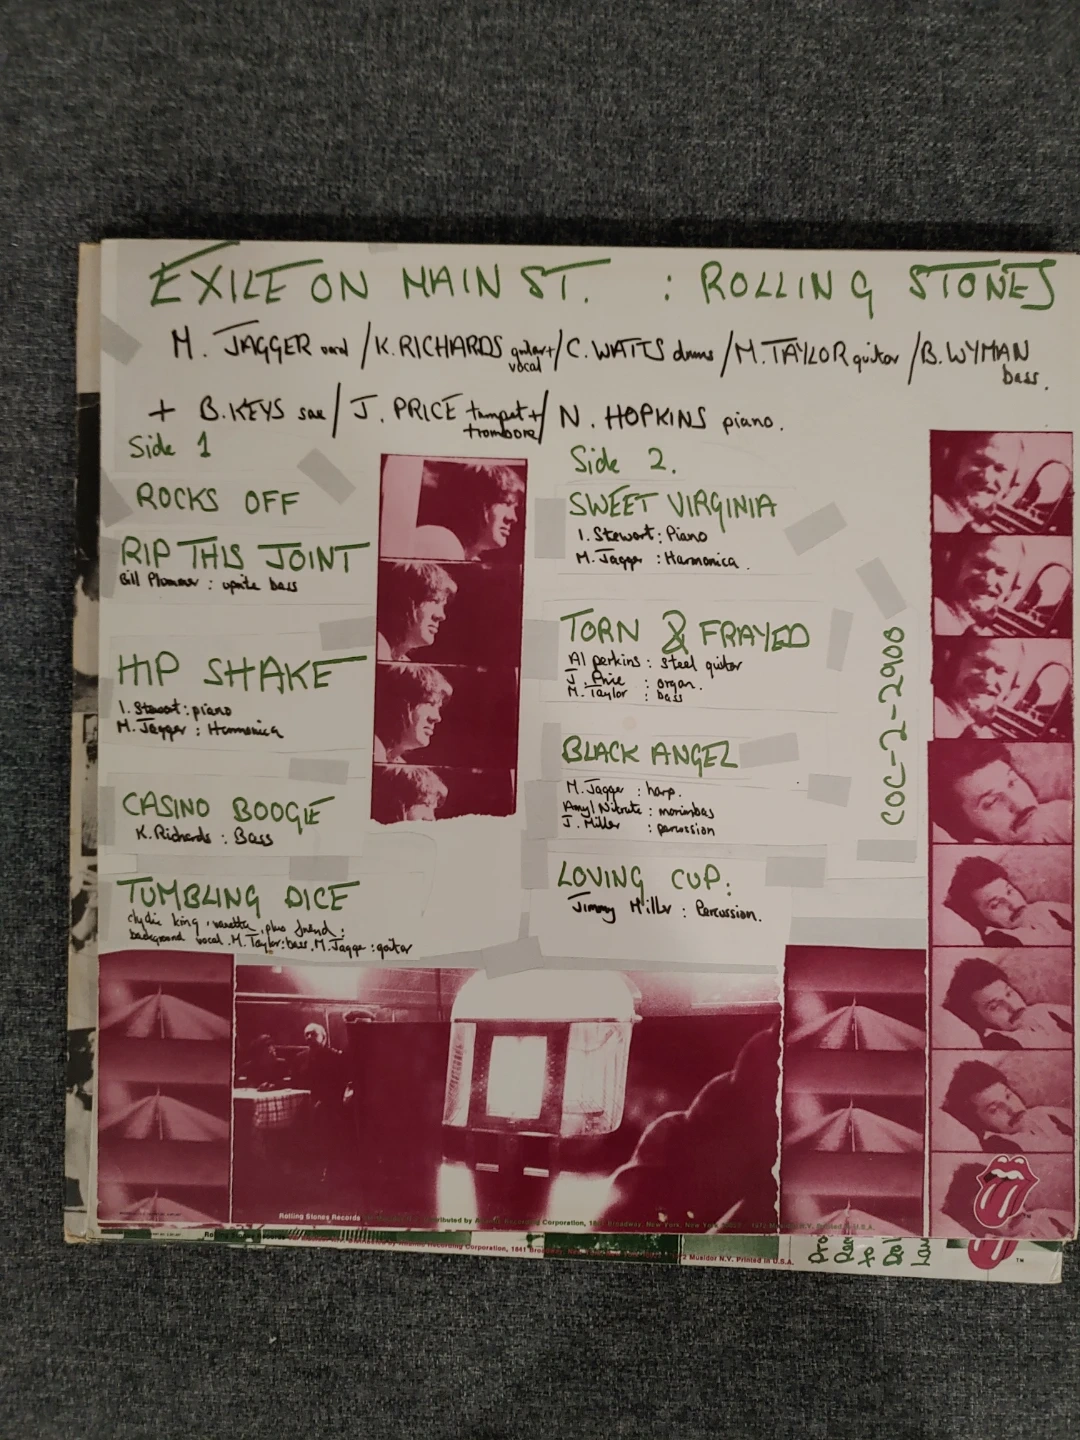 EXILE ON MAIN ST. : ROLLING STONES
M. JAGGER vocal / K. RICHARDS guitar + vocal / C. WATTS drums / M. TAYLOR guitar / B. WYMAN bass.
+ B. KEYS sax / J. PRICE trumpet + trombone / N. HOPKINS piano.
Side 1
ROCKS OFF
RIP THIS JOINT
Bill Plummer : uprite bass
HIP SHAKE
I. Stewart : piano
M. Jagger : Harmonica
CASINO BOOGIE
K. Richards : Bass
TUMBLING DICE
clydie king, vanetta, plus friend :
background vocal. M. Taylor : bass. M. Jagger : guitar
Side 2.
SWEET VIRGINIA
I. Stewart : Piano
M. Jagger : Harmonica.
TORN & FRAYED
Al perkins : steel guitar
J. Price : organ.
M. Taylor : bass
BLACK ANGEL
M. Jagger : harp.
Amyl Nitrate : marimbas
J. Miller : percussion
LOVING CUP :
Jimmy Miller : Percussion.
COC-2-2900
Rolling Stones Records
Distributed by Atlantic Recording Corporation, 1841 Broadway, New York, New York
Printed in U.S.A.
TM
Recording Corporation, 1841 Broadway,
Musidor N.V. Printed in U.S.A.
TM